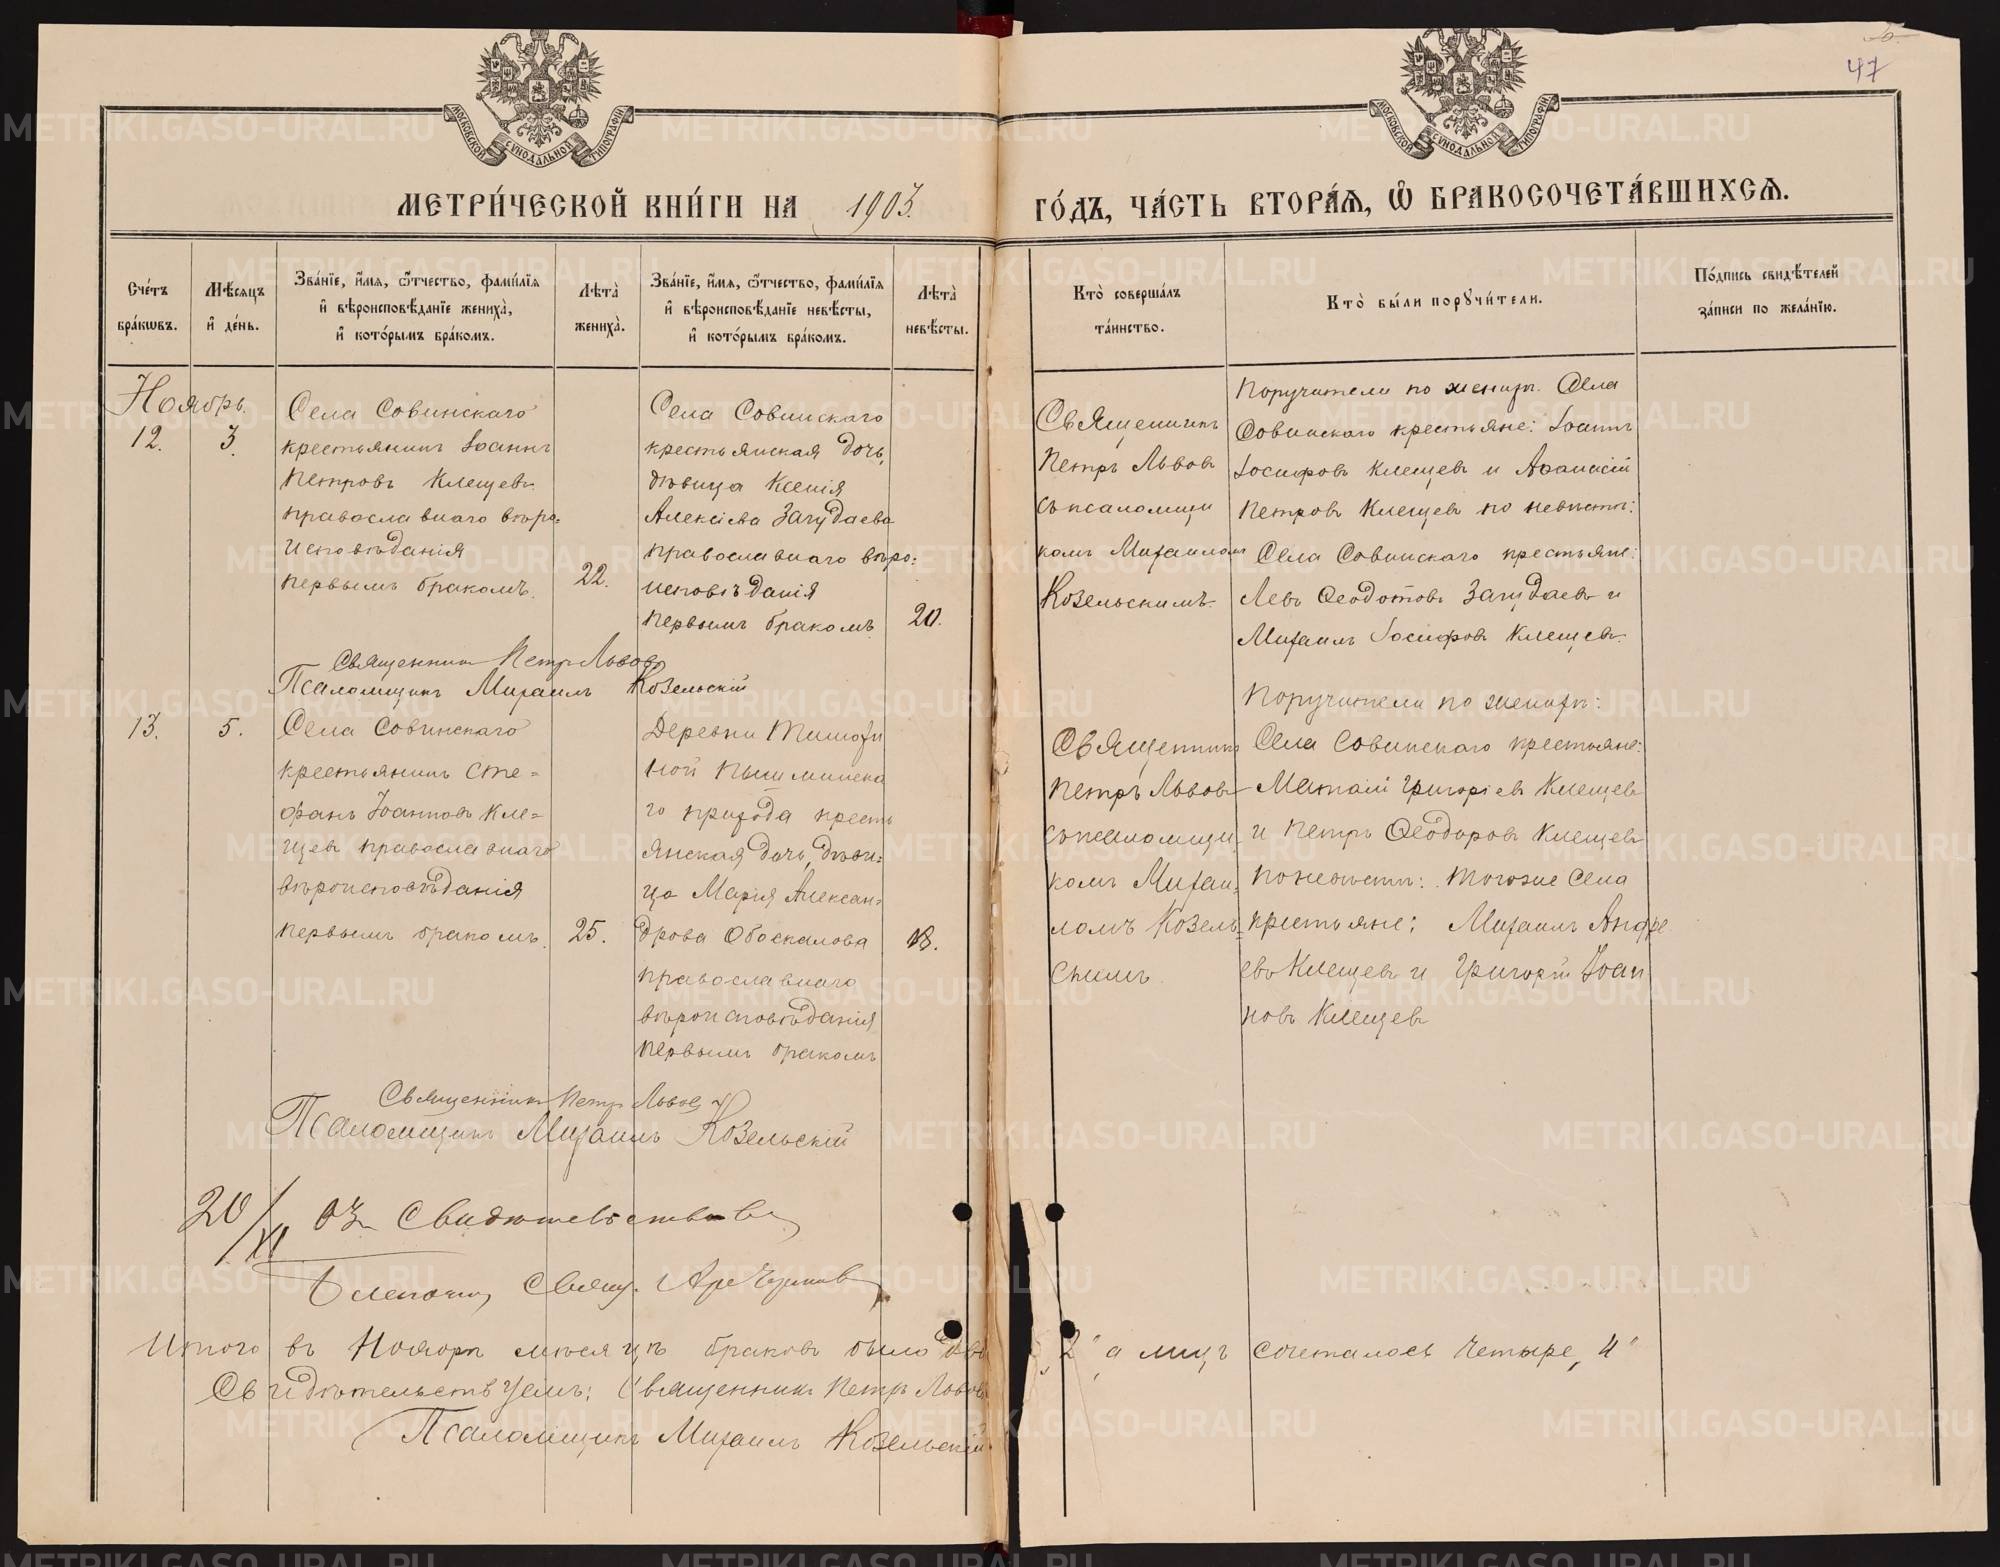 47
МОСКОВСКОЙ СѴНОДАЛЬНОЙ ТИПОГРАФІИ
МОСКОВСКОЙ СѴНОДАЛЬНОЙ ТИПОГРАФІИ
МЕТРИ́ЧЕСКОЙ КНИ́ГИ НА 1903. ГО́ДЪ, ЧА́СТЬ ВТОРА́Я, Ѽ БРАКОСОЧЕТА́ВШИХСЯ.
Сче́тъ
бра́кѡвъ.
Мѣ́сяцъ
и҆ де́нь.
Зва́нїе, и҆́мя, ѻ҆́тчество, фами́лїѧ
и҆ вѣроисповѣ́данїе жениха̀,
и҆ кото́рымъ бра́комъ.
Лѣта̀
жениха̀.
Зва́нїе, и҆́мя, ѻ҆́тчество, фами́лїѧ
и҆ вѣроисповѣ́данїе невѣ́сты,
и҆ кото́рымъ бра́комъ.
Лѣта̀
невѣ́сты.
Кто̀ соверша́лъ
та́инство.
Кто̀ бы́ли порꙋчи́тели.
По́дпись свидѣ́телей
за́писи по жела́нїю.
Ноябрь.
12.
3.
Села Совинскаго
крестьянинъ Іоаннъ
Петровъ Клещевъ
православнаго вѣро=
исповѣданія
первымъ бракомъ.
22.
Села Совинскаго
крестьянская дочь,
дѣвица Ксенія
Алексіева Загудаева
православнаго вѣро:
исповѣданія
первымъ бракомъ
20.
Священникъ
Петръ Львовъ
съ псаломщи
комъ Михаиломъ
Козельскимъ.
Поручители по женихѣ. Села
Совинскаго крестьяне: Іоаннъ
Іосифовъ Клещевъ и Аѳанасій
Петровъ Клещевъ по невѣстѣ:
Села Совинскаго крестьяне:
Левъ Ѳеодотовъ Загудаевъ и
Михаилъ Іосифовъ Клещевъ.
Священникъ Петръ Львовъ
Псаломщикъ Михаилъ Козельскій
13.
5.
Села Совинскаго
крестьянинъ Сте=
фанъ Іоанновъ Кле=
щевъ православнаго
вѣроисповѣданія
первымъ бракомъ.
25.
Деревни Тимохи
ной Пышминска
го прихода кресть
янская дочь, дѣви=
ца Марія Алексан=
дрова Обоскалова
православнаго
вѣроисповѣданія
первымъ бракомъ
18.
Священникъ
Петръ Львовъ
съ псаломщи
комъ Михаи=
ломъ Козель=
скимъ
Поручители по женихѣ:
Села Совинскаго крестьяне:
Григоріевъ Клещевъ
и Петръ Ѳеодоровъ Клещевъ
по невѣстѣ: Тогоже Села
крестьяне; Михаилъ Андре
евъ Клещевъ и Григорій Іоан
новъ Клещевъ
Священникъ Петръ Львовъ
Псаломщикъ Михаилъ Козельскій
20/XI 03
Свящ.
Итого въ Ноябрѣ мѣсяцѣ браковъ было два „2“, а лицъ сочеталось четыре „4“
Свидѣтельствуемъ: Священникъ Петръ Львовъ
Псаломщикъ Михаилъ Козельскій
METRIKI.GASO-URAL.RU